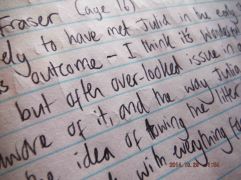 Fraser (age 16)
ely to have met Julia in the early
outcome - I think it's wonderful
but often over-looked issue in
aware of it, and the way Julia
the idea of the liter
with everything
2014.10.26